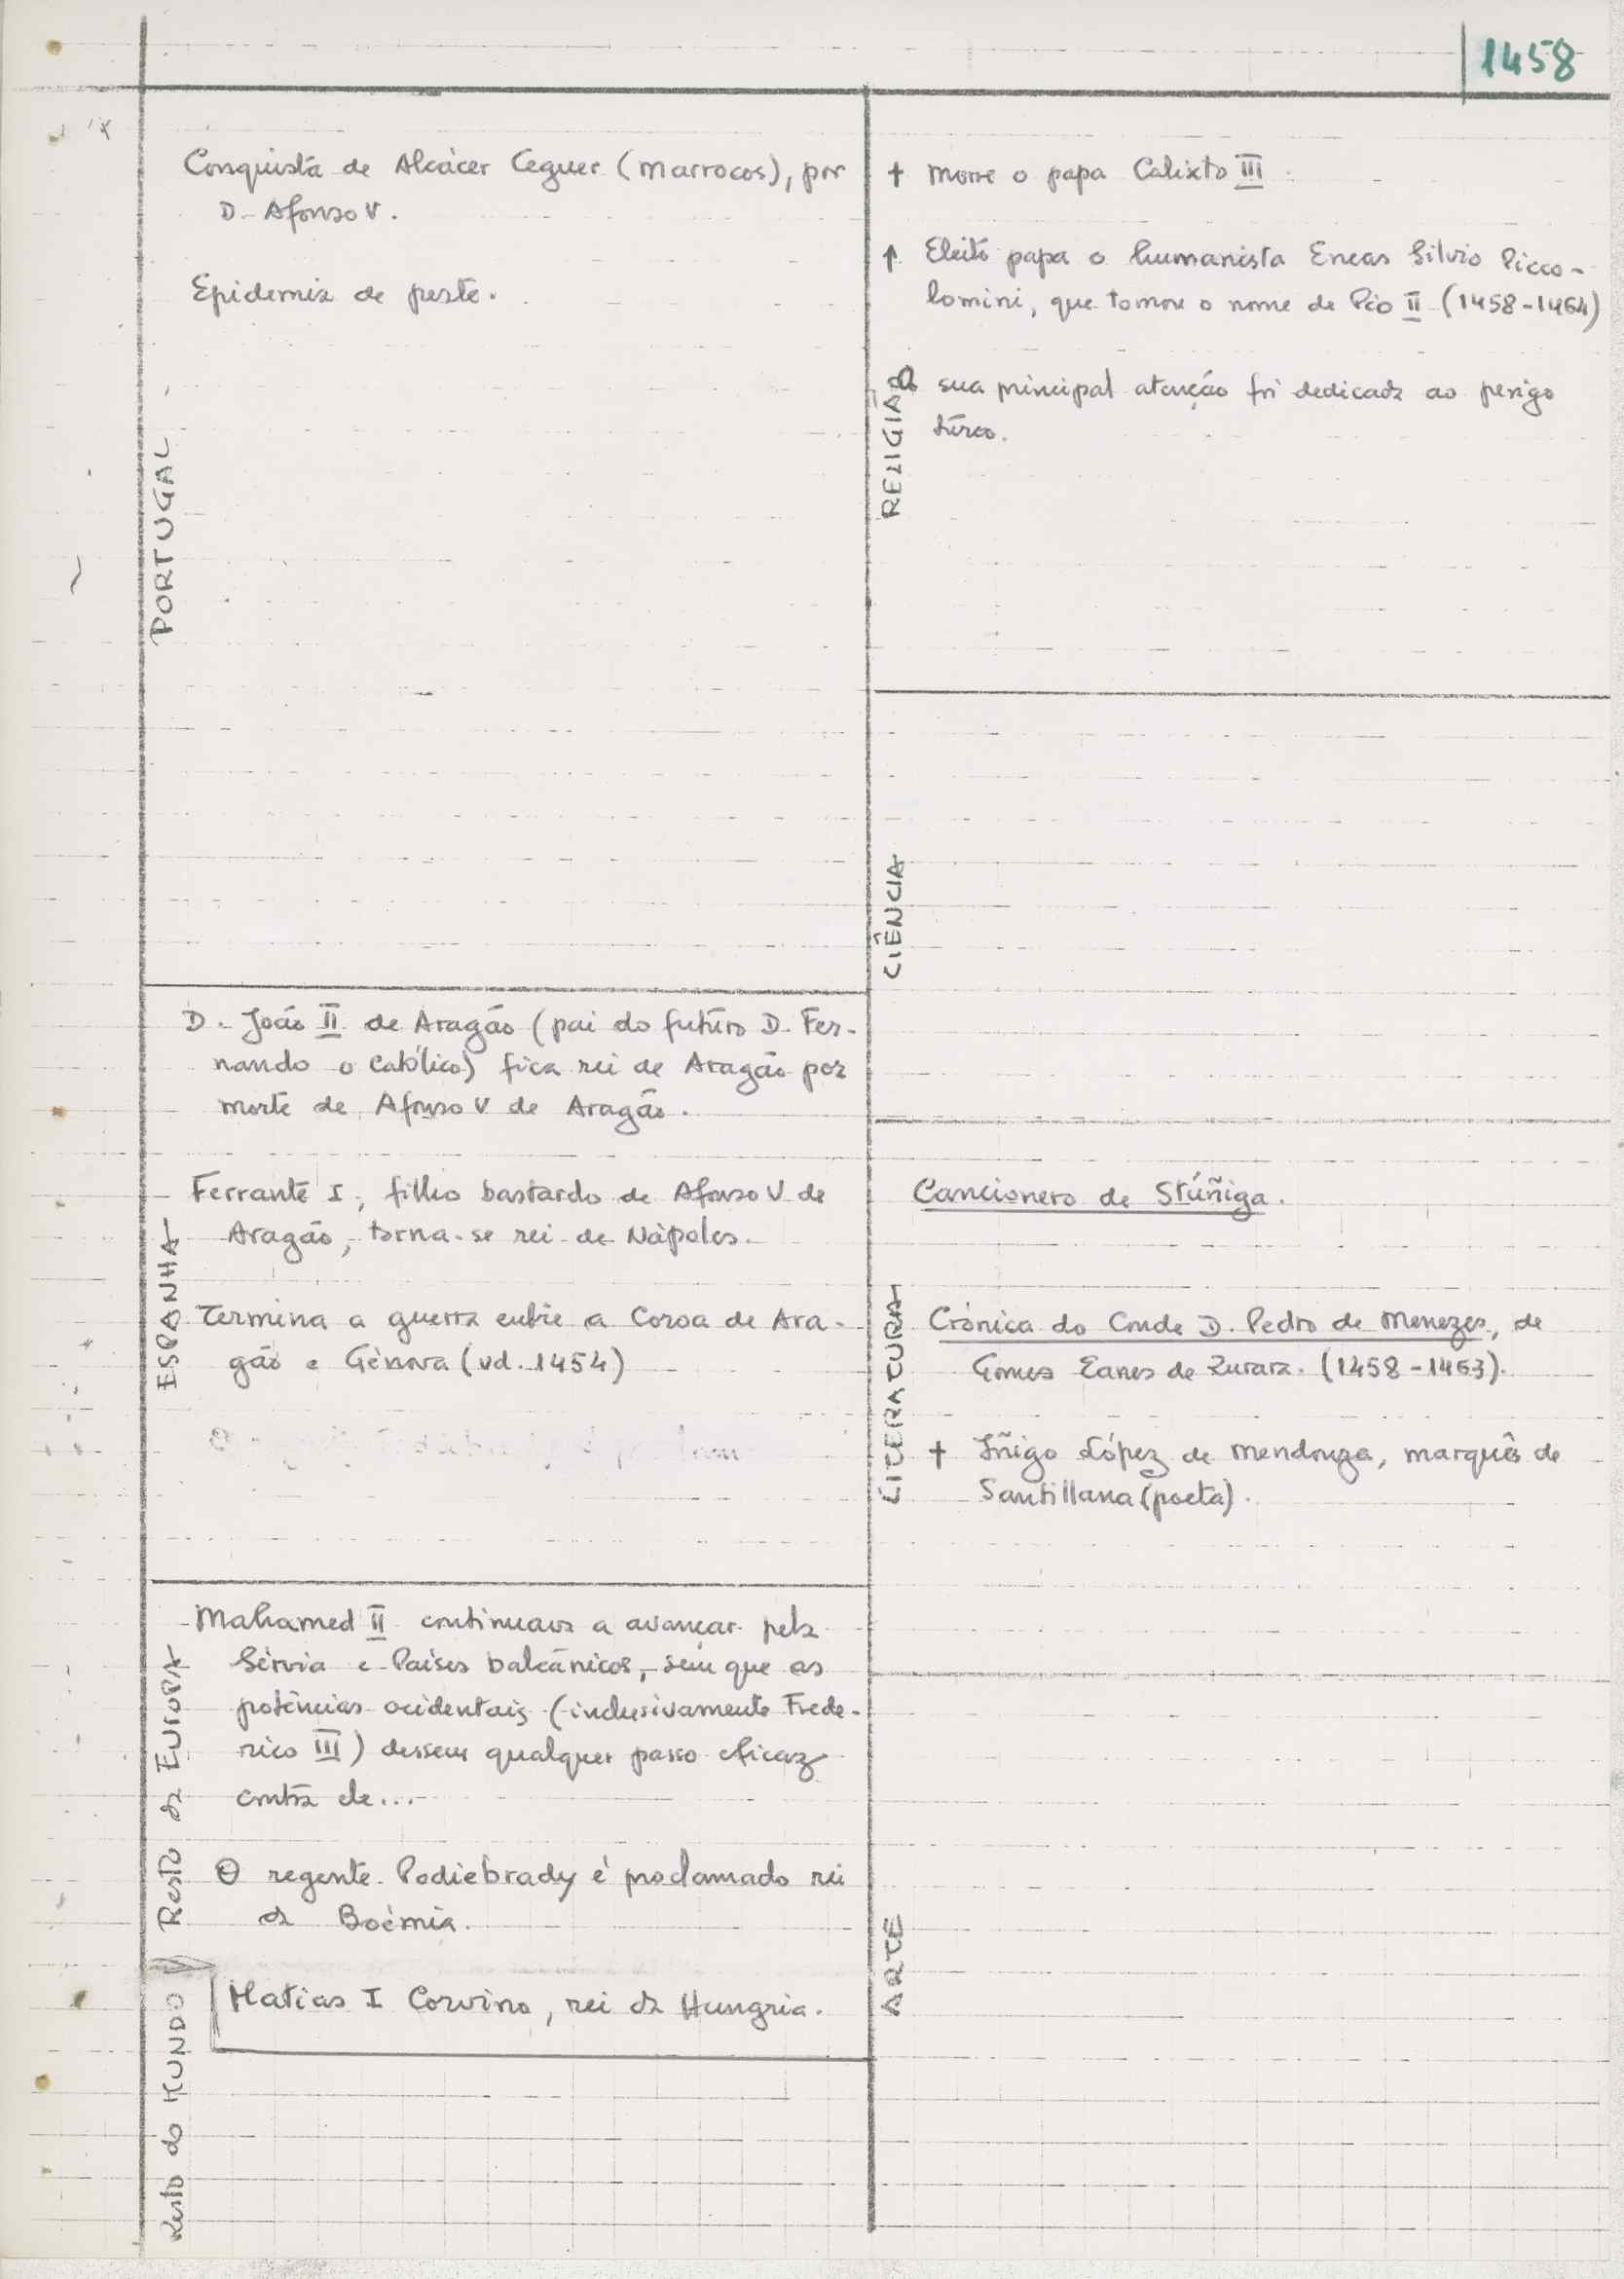 1458
PORTUGAL
Conquista de Alcácer Ceguer (Marrocos), por
D. Afonso V.
Epidemia de peste.
ESPANHA
D. João II de Aragão (pai do futuro D. Fer-
nando o Católico) fica rei de Aragão por
morte de Afonso V de Aragão.
Ferrante I, filho bastardo de Afonso V de
Aragão, torna-se rei de Nápoles.
Termina a guerra entre a Coroa de Ara-
gão e Génova (vd. 1454)
Resto da EUROPA
Mahamed II continuava a avançar pela
Sérvia e Países balcânicos, sem que as
potências ocidentais (inclusivamente Frede-
rico III) dessem qualquer passo eficaz
contra ele...
O regente Podiebrady é proclamado rei
da Boémia.
Matias I Corvino, rei da Hungria.
Resto do MUNDO
RELIGIÃO
† Morre o papa Calixto III.
↑ Eleito papa o humanista Eneas Silvio Picco-
lomini, que tomou o nome de Pio II (1458-1464)
A sua principal atenção foi dedicada ao perigo
turco.
CIÊNCIA
LITERATURA
Cancionero de Stúñiga.
Crónica do Conde D. Pedro de Menezes, de
Gomes Eanes de Zurara. (1458-1463).
† Iñigo López de Mendonza, marquês de
Santillana (poeta).
ARTE